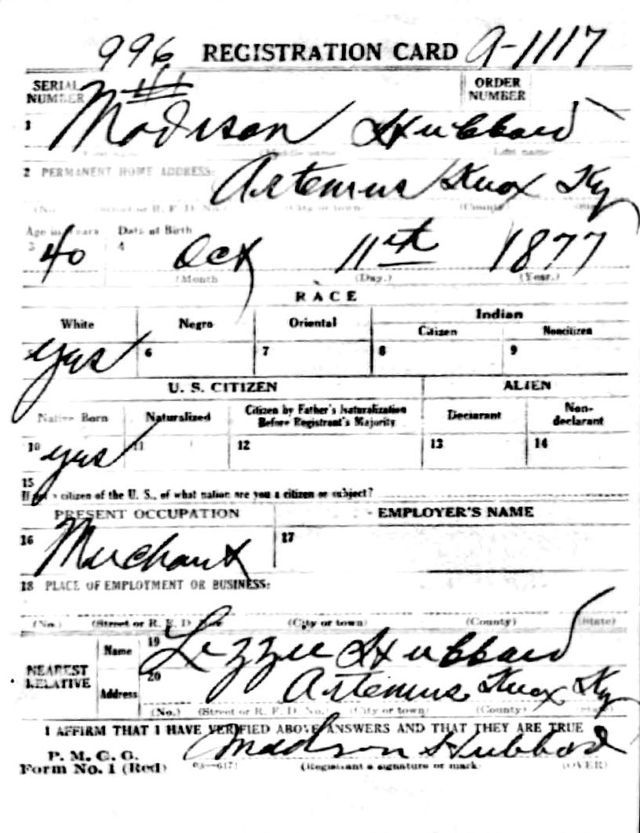 996 REGISTRATION CARD A-1117
SERIAL NUMBER ORDER NUMBER
1 Madison Hubbard
2 PERMANENT HOME ADDRESS: Artemus Knox Ky
(No.) (Street or R. F. D. No.) (City or town) (County) (State)
Age in Years Date of Birth
3 40 4 Oct 11th 1877
(Month (Day.) (Year.)
RACE
White Negro Oriental Indian
Citizen Noncitizen
yes 6 7 8 9
U. S. CITIZEN ALIEN
Native Born Naturalized Citizen by Father's Naturalization Before Registrant's Majority Declarant Non-declarant
10 yes 11 12 13 14
15
If not a citizen of the U. S., of what nation are you a citizen or subject?
PRESENT OCCUPATION EMPLOYER'S NAME
16 Merchant 17
18 PLACE OF EMPLOYMENT OR BUSINESS:
(No.) (Street or R. F. D. No.) (City or town) (County) (State)
NEAREST RELATIVE Name 19 Lizzie Hubbard
Address 20 Artemus Knox Ky
(No.) (Street or R. F. D. No.) (City or town) (County)
I AFFIRM THAT I HAVE VERIFIED ABOVE ANSWERS AND THAT THEY ARE TRUE
P. M. G. O. Madison Hubbard
Form No. 1 (Red) (Registrant's signature or mark) (OVER)